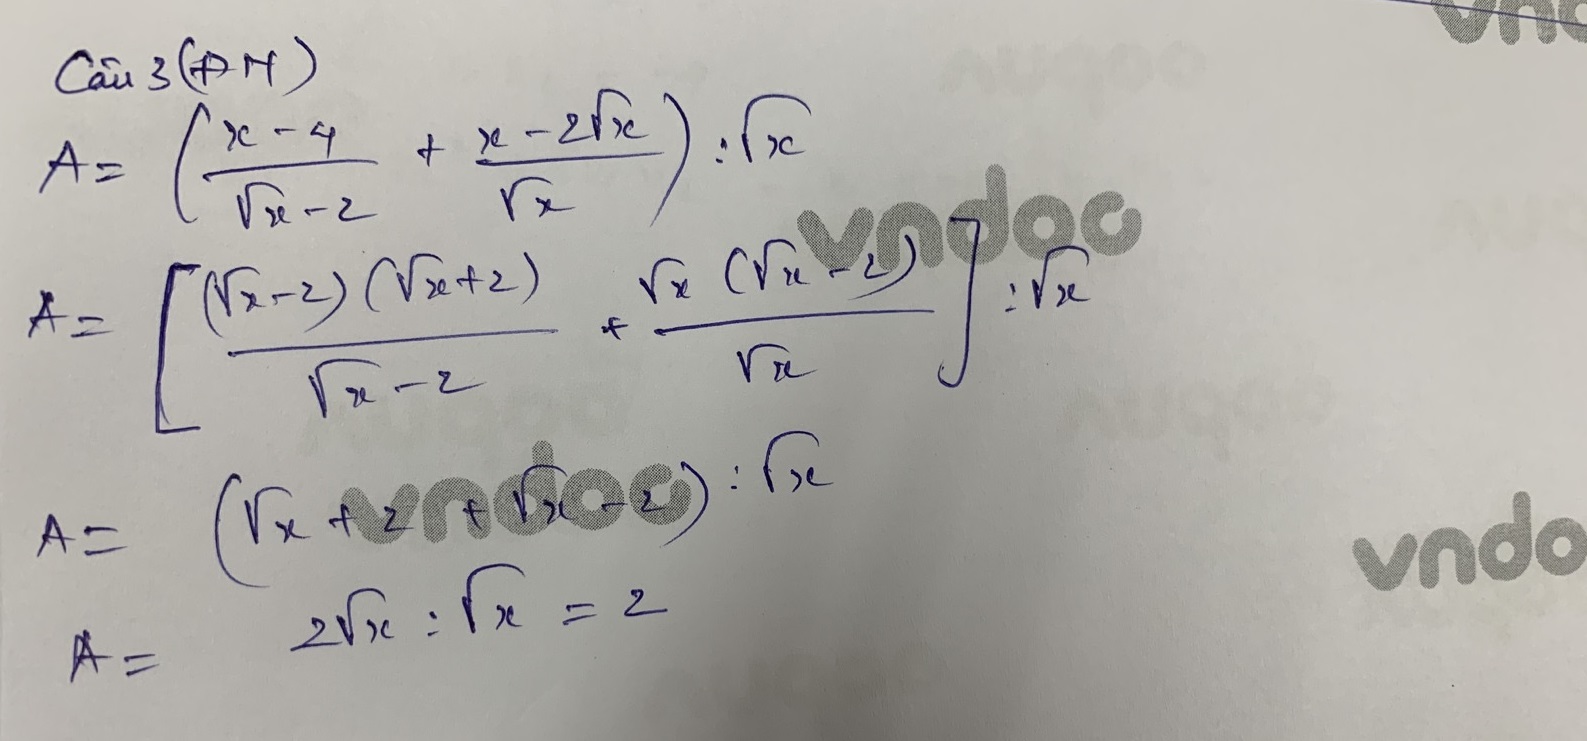 Câu 3 (ĐN)
A = ( (x - 4)/(√x - 2) + (x - 2√x)/√x ) : √x
A = [ (√x - 2)(√x + 2)/(√x - 2) + √x (√x - 2)/√x ] : √x
A = (√x + 2 + √x - 2) : √x
A = 2√x : √x = 2
vndoc
vndoc